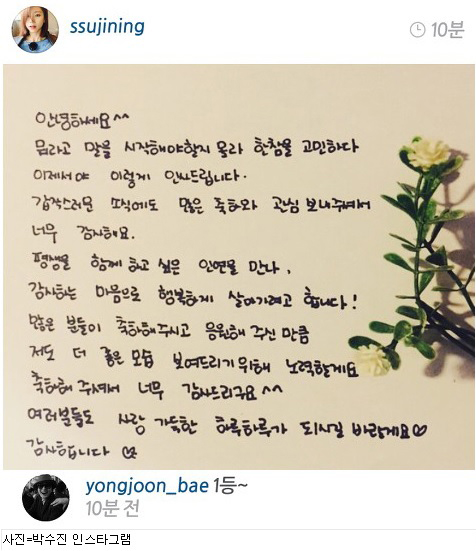 ssujining
10분
안녕하세요^^
뭐라고 말을 시작해야할지 몰라 한참을 고민하다
이제서야 이렇게 인사드립니다.
갑작스러운 소식에도 많은 축하와 관심 보내주셔서
너무 감사해요.
평생을 함께 하고 싶은 인연을 만나,
감사하는 마음으로 행복하게 살아가려고 합니다!
많은 분들이 축하해주시고 응원해 주신 만큼
저도 더 좋은 모습 보여드리기 위해 노력할게요
축하해 주셔서 너무 감사드리구요^^
여러분들도 사랑 가득한 하루하루가 되시길 바랄게요♡
감사합니다 ♡
yongjoon_bae 1등~
10분 전
사진=박수진 인스타그램